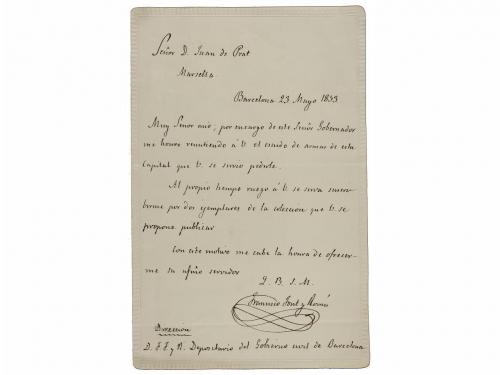 Señor D. Juan de Prat
Marsella
Barcelona 23 Mayo 1853
Muy Señor mio; por encargo de este Señor Gobernador
me honro remitiendo á V. el escudo de armas de esta
Capital que V. se servio pedirle.
Al propio tiempo ruego á V. se sirva suscri-
birme por dos egemplares de la coleccion que V. se
propone publicar
Con este motivo me cabe la honra de ofrecer-
me su afmo servidor
Q. B. S. M.
Francisco Font y
Direccion
D. F. F. y R. Depositario del Gobierno civil de Barcelona